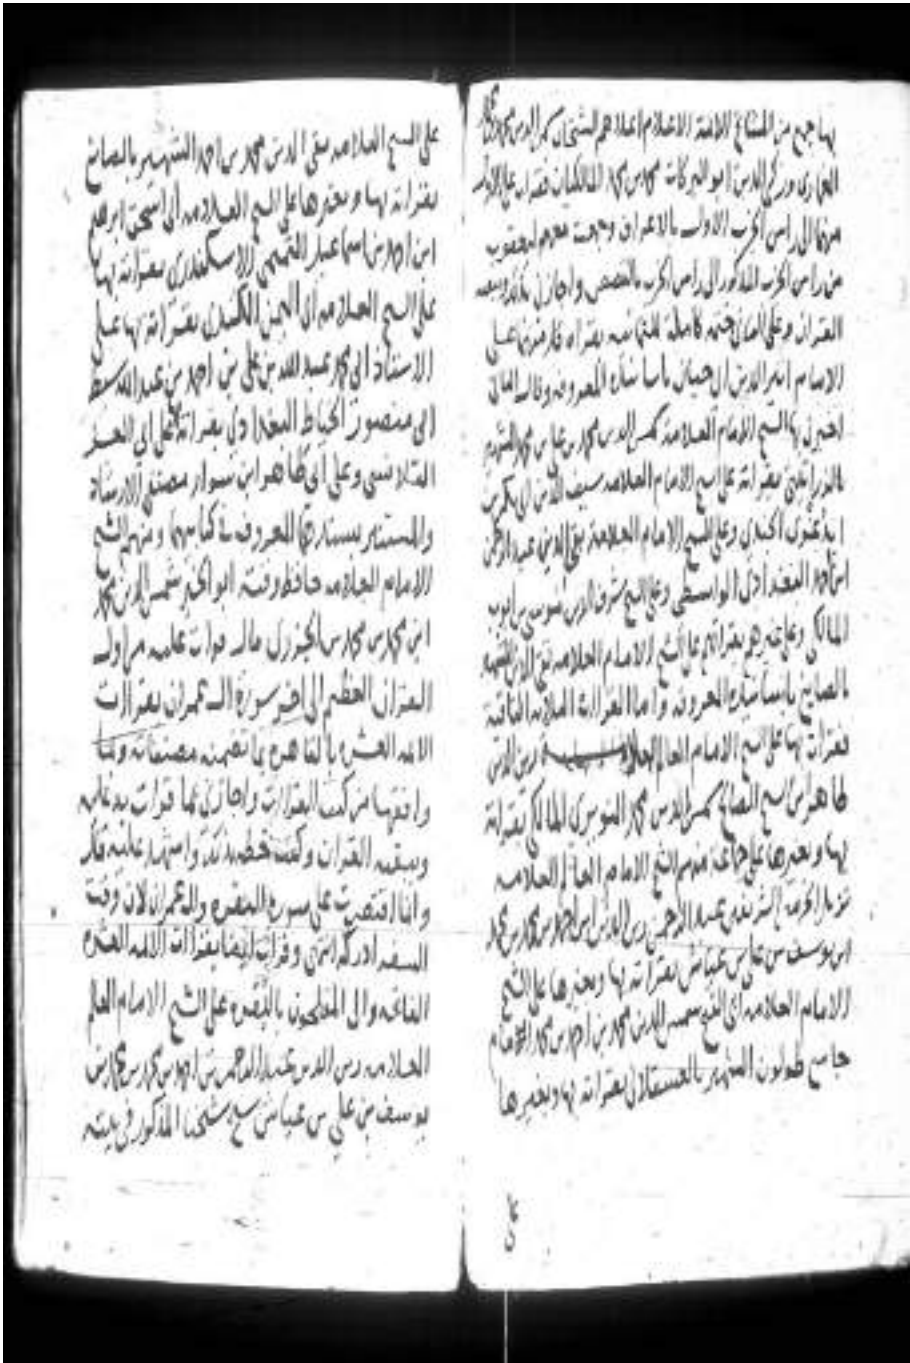 بها جمع من المشايخ الائمة الاعلام اعلاهم الشيخان شمس الدين محمد
الغماري وزكي الدين ابو البركات محمد بن محمد المالكيان فقرات على الاول
منهما الى راس الحزب الاول بالاعراف وجمعت معهم ليعقوب
من راس الحزب المذكور الى راس الحزب بالقصص واجازني بذلك
القران وعلى الثاني ختمة كاملة للثمانية بقراة كل منهما على
الامام اثير الدين ابي حيان باسانيده المعروفة وقال الثاني
اخبرني بها الشيخ الامام العلامة شمس الدين محمد بن محمد الشهير
بقراته على الشيخ الامام العلامة سيف الدين ابي بكر بن
ايدغدي الجندي وعلى الشيخ الامام العلامة تقي الدين عبد الرحمن
ابن احمد البغدادي الواسطي وعلى الشيخ شرف الدين موسى بن ايوب
المالكي وعلى غيرهم بقراتهم على الشيخ الامام العلامة تقي الدين الشهير
بالصايغ باسانيده المعروفة واما القراات الثلاثة الباقية
فقرات بها على الشيخ الامام العالم العلامة زين الدين
طاهر ابن الشيخ الصالح شمس الدين محمد النويري المالكي بقراته
بها وبغيرها على جماعة منهم الشيخ الامام العالم العلامة
نزيل الحرمين الشريفين عبد الرحمن زين الدين ابن احمد بن محمد بن محمد
ابن يوسف بن علي بن عياش بقراته بها وبغيرها على الشيخ
الامام العلامة ابي الفتح شمس الدين محمد بن احمد بن محمد امام
جامع طولون الشهير بالعسقلاني بقراته بها وبغيرها
على
على الشيخ العلامة تقي الدين محمد بن احمد الشهير بالصايغ
بقراته بها وبغيرها على الشيخ العلامة ابي اسحق ابرهيم
ابن احمد بن اسماعيل التميمي الاسكندري بقراته بها
على الشيخ العلامة ابي اليمن الكندي بقراته بها على
الاستاذ ابي محمد عبد الله بن علي بن احمد بن عبد الله سبط
ابي منصور الخياط البغدادي بقراته بها على ابي العز
القلانسي وعلى ابي طاهر ابن سوار مصنفي الارشاد
والمستنير بسندهما المعروف في كتابيهما ومنهم الشيخ
الامام العلامة حافظ وقته ابو الخير شمس الدين محمد
ابن محمد بن محمد بن الجزري قال قرات عليه من اول
القران العظيم الى اخر سورة ال عمران بقراات
الائمة العشرة بالقاهرة بما تضمنه مصنفاته وما
وافقها من كتب القراات واجازني بما قرات به عليه
وببقية القران وكتب خطه بذلك واشهد عليه قال
وانما اقتصرت على سورة البقرة وال عمران لان وقت
السفر ادركه انتهى وقرات ايضا بقراات الائمة العشرة
الفاتحة والى المفلحون بالبقرة على الشيخ الامام العالم
العلامة زين الدين عبد الرحمن بن احمد بن محمد بن محمد بن
يوسف بن علي بن عياش شيخ شيخنا المذكور في بيته